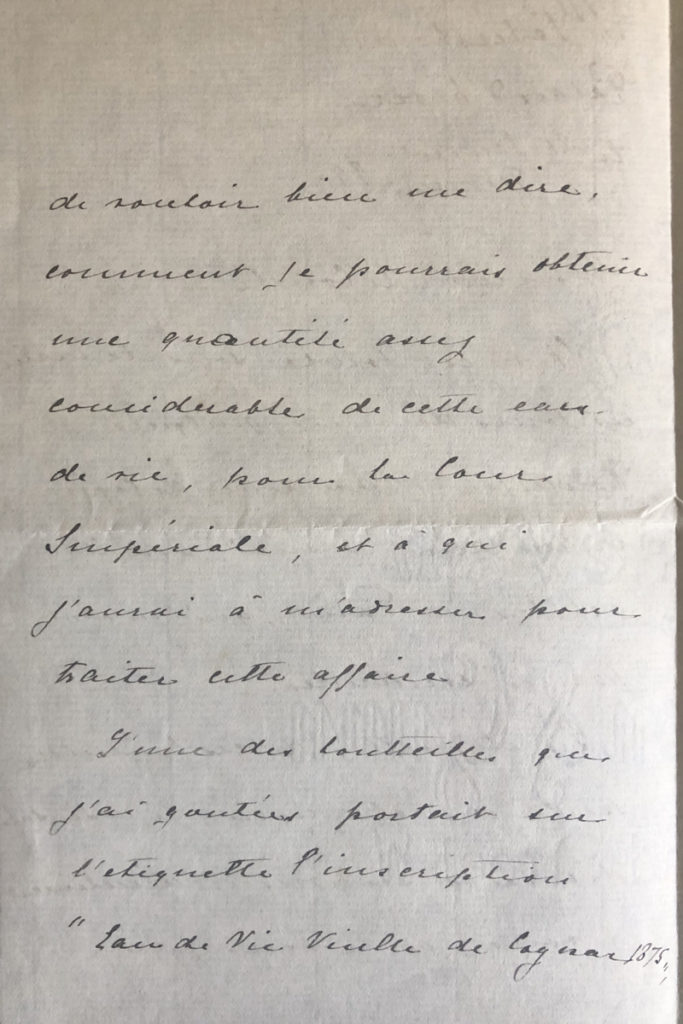 de vouloir bien me dire,
comment je pourrais obtenir
une quantité assez
considerable de cette eau-
de vie, pour la Cour
Impériale, et à qui
j'aurai à m'adresser pour
traiter cette affaire
L'une des boutteilles que
j'ai goutées portait sur
l'etiquette l'inscription
"Eau de Vie Vieille de Cognac 1875"